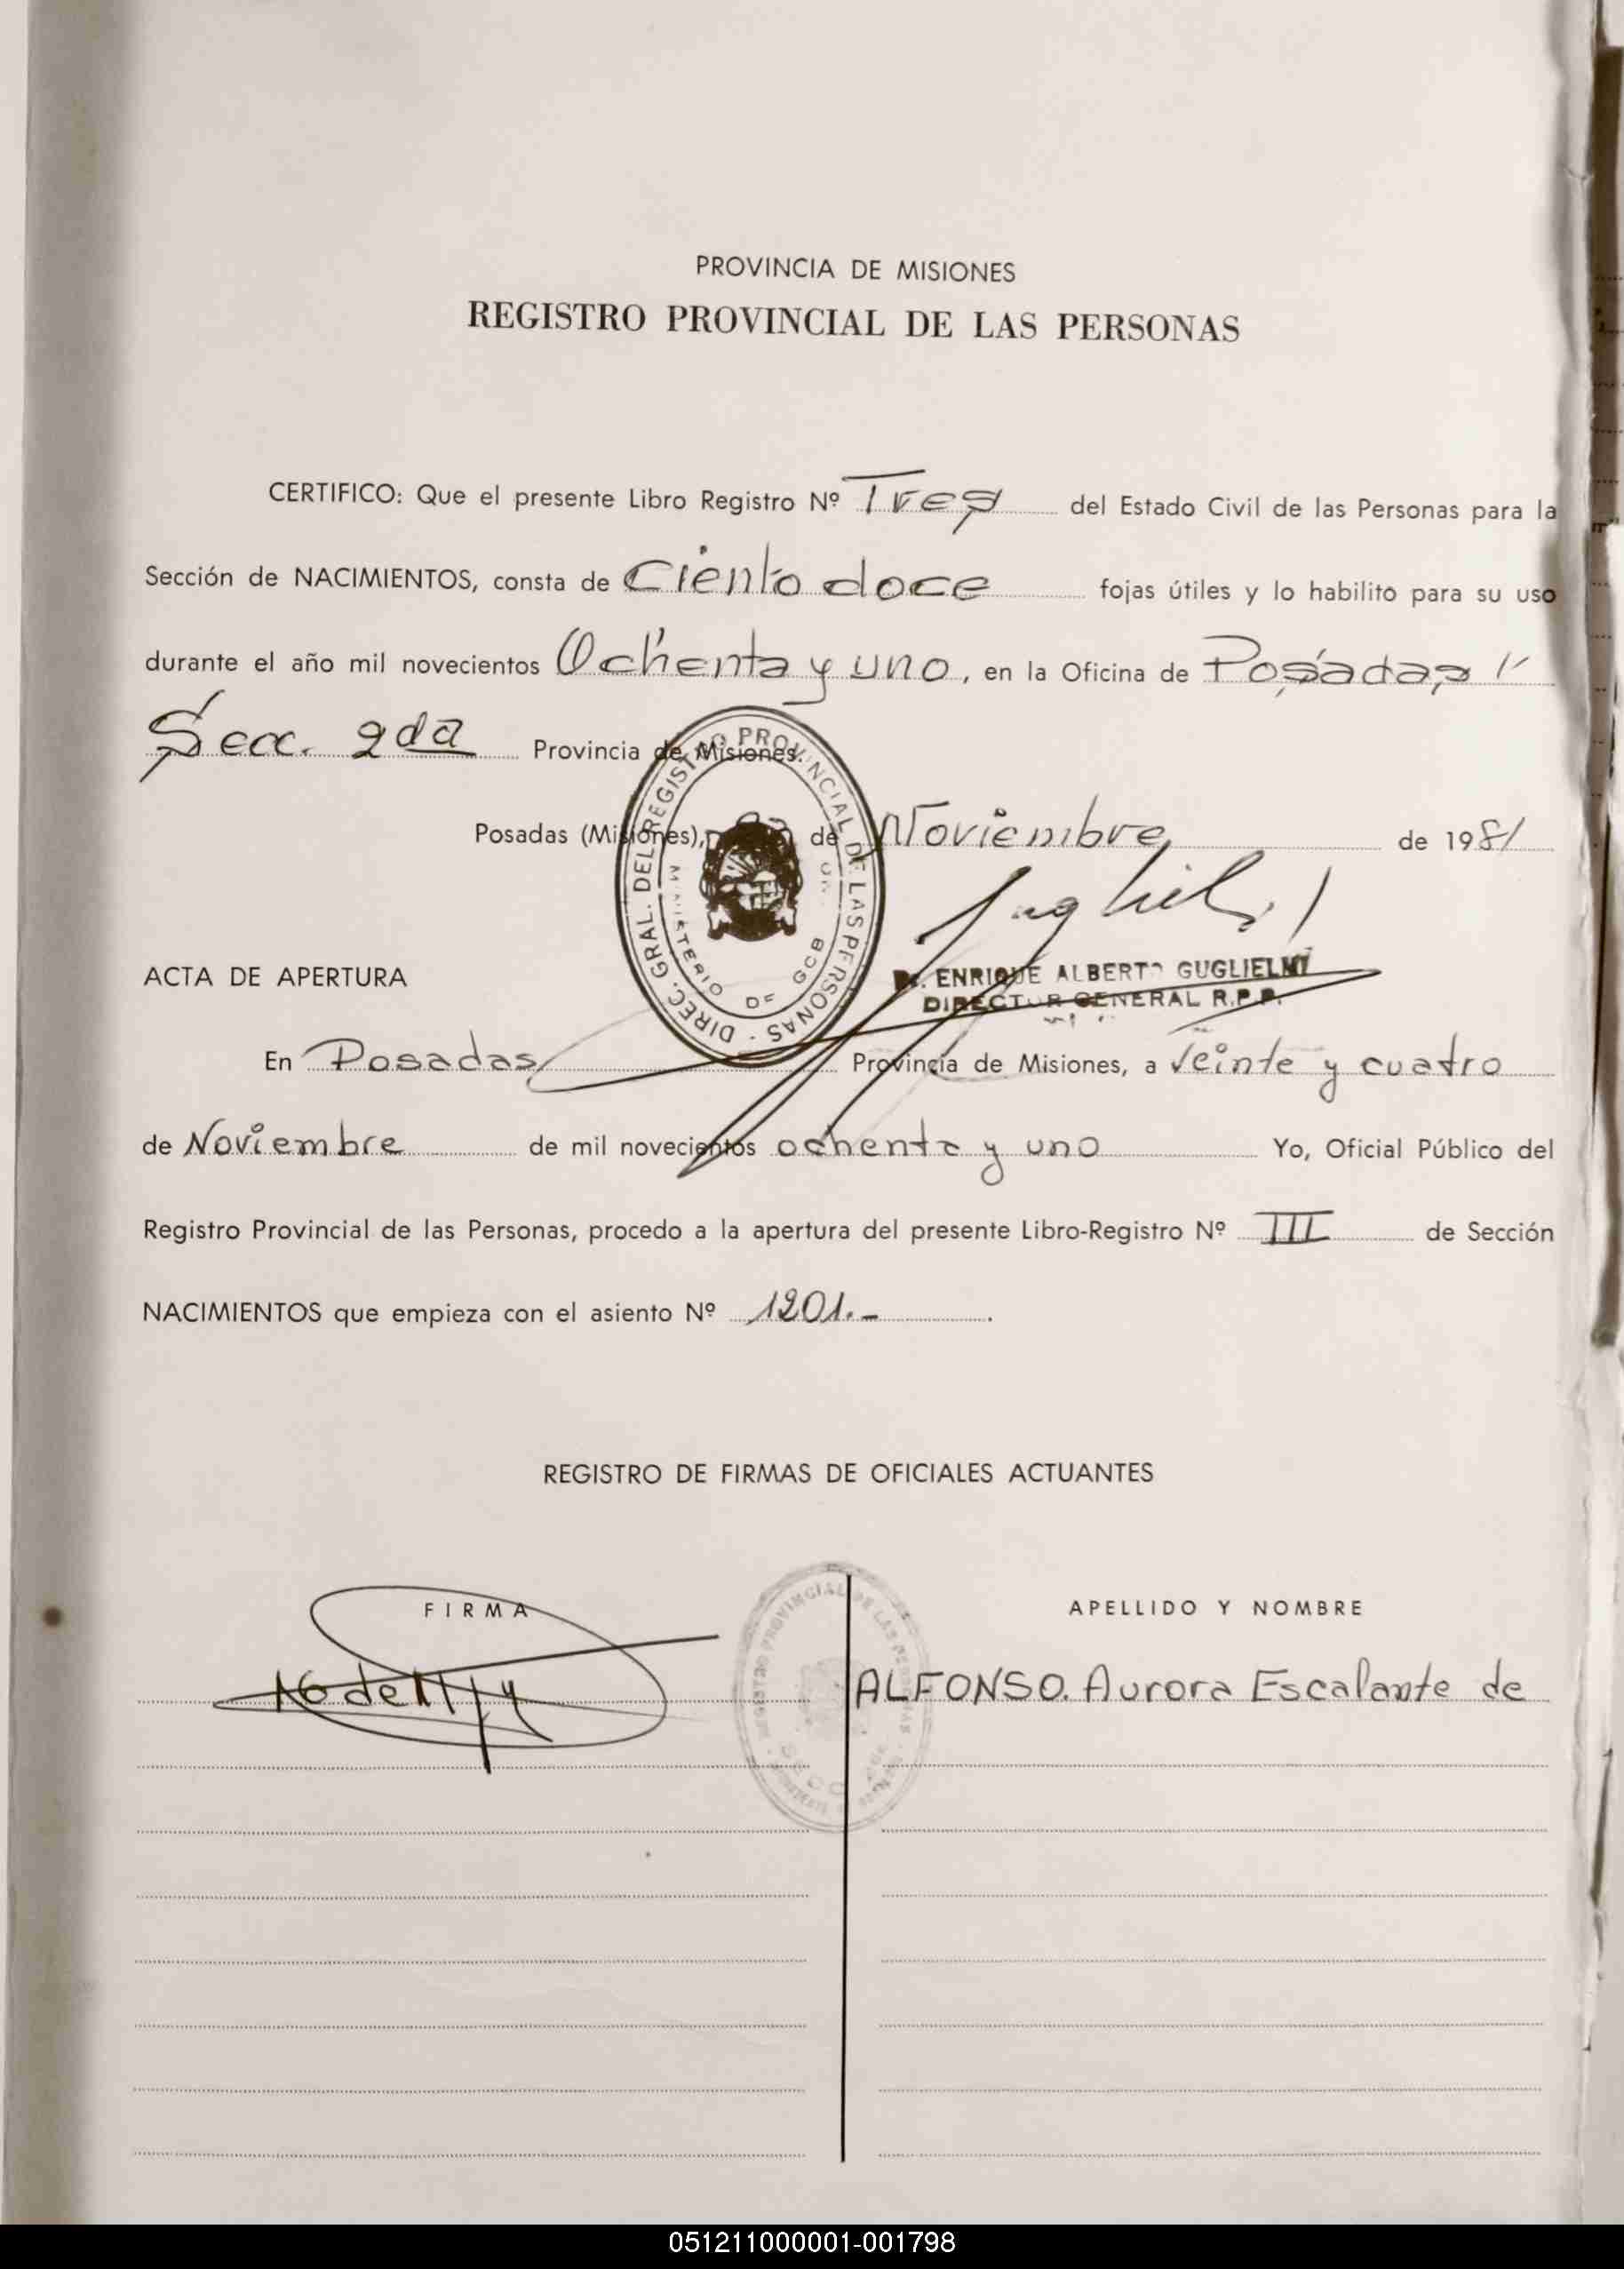 PROVINCIA DE MISIONES
REGISTRO PROVINCIAL DE LAS PERSONAS
CERTIFICO: Que el presente Libro Registro Nº Tres del Estado Civil de las Personas para la
Sección de NACIMIENTOS, consta de Ciento doce fojas útiles y lo habilito para su uso
durante el año mil novecientos Ochenta y uno, en la Oficina de Posadas
Secc. 2da Provincia de Misiones.
Posadas (Misiones), de Noviembre de 1981
DIREC. GRAL. DEL REGISTRO PROVINCIAL DE LAS PERSONAS
MINISTERIO DE GOB
Dr. ENRIQUE ALBERTO GUGLIELMI
DIRECTOR GENERAL R.P.P.
ACTA DE APERTURA
En Posadas Provincia de Misiones, a veinte y cuatro
de Noviembre de mil novecientos ochenta y uno Yo, Oficial Público del
Registro Provincial de las Personas, procedo a la apertura del presente Libro-Registro Nº III de Sección
NACIMIENTOS que empieza con el asiento Nº 1201.-
REGISTRO DE FIRMAS DE OFICIALES ACTUANTES
FIRMA APELLIDO Y NOMBRE
ALFONSO. Aurora Escalante de
051211000001-001798